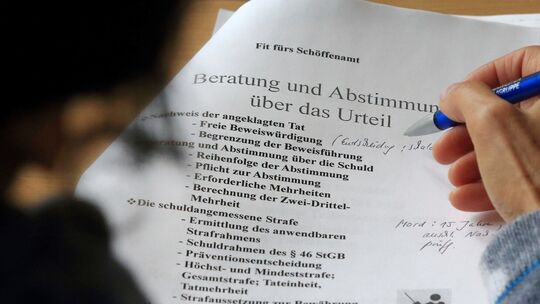 Fit fürs Schöffenamt
Beratung und Abstimmun
über das Urteil
Nachweis der angeklagten Tat
- Freie Beweiswürdigung
- Begrenzung der Beweisführung
Beratung und Abstimmung über die Schuld
- Reihenfolge der Abstimmung
- Pflicht zur Abstimmung
- Erforderliche Mehrheiten
- Berechnung der Zwei-Drittel-
Mehrheit
❖ Die schuldangemessene Strafe
- Ermittlung des anwendbaren
Strafrahmens
- Schuldrahmen des § 46 StGB
- Präventionsentscheidung
- Höchst- und Mindeststrafe;
Gesamtstrafe; Tateinheit,
Tatmehrheit
- Strafaussetzung zur Bewährung
Mord: 15 Jahre